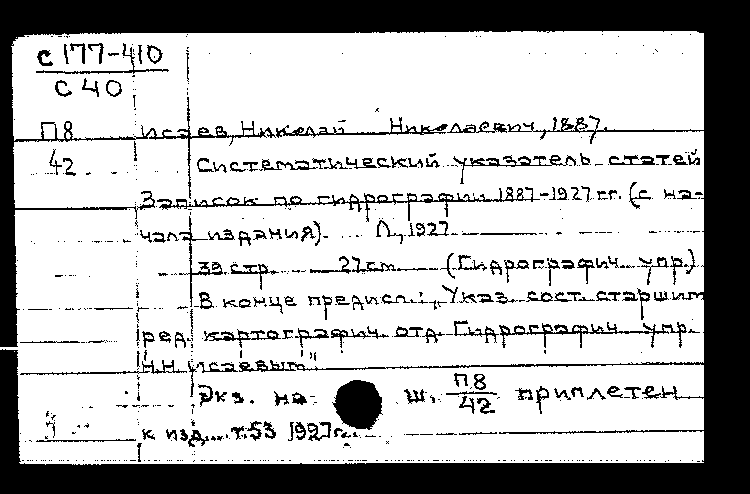 С 177-410
С 40
П8 Исаев, Николай Николаевич, 1887.
42 Систематический указатель статей
Записок по гидрографии 1887-1927 гг. (с на-
чала издания). Л., 1927
39 стр. 27 см. (Гидрографич. упр.)
В конце предисл.: „Указ. сост. старшим
ред. картографич. отд. Гидрографич. упр.
Н.Н. Исаевым"
Экз. на ш. П8/42 приплетен
к изд. т.53 1927г.